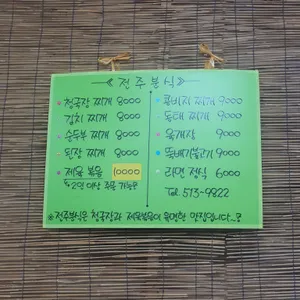 《전주분식》
청국장 찌개 8000
김치 찌개 8000
순두부 찌개 8000
된장 찌개 8000
제육 볶음 10000
2인 이상 주문 가능
콩비지 찌개 9000
동태 찌개 9000
육개장 9000
뚝배기불고기 9000
라면 정식 6000
Tel. 513-9822
※전주분식은 청국장과 제육볶음이 유명한 맛집입니다...?